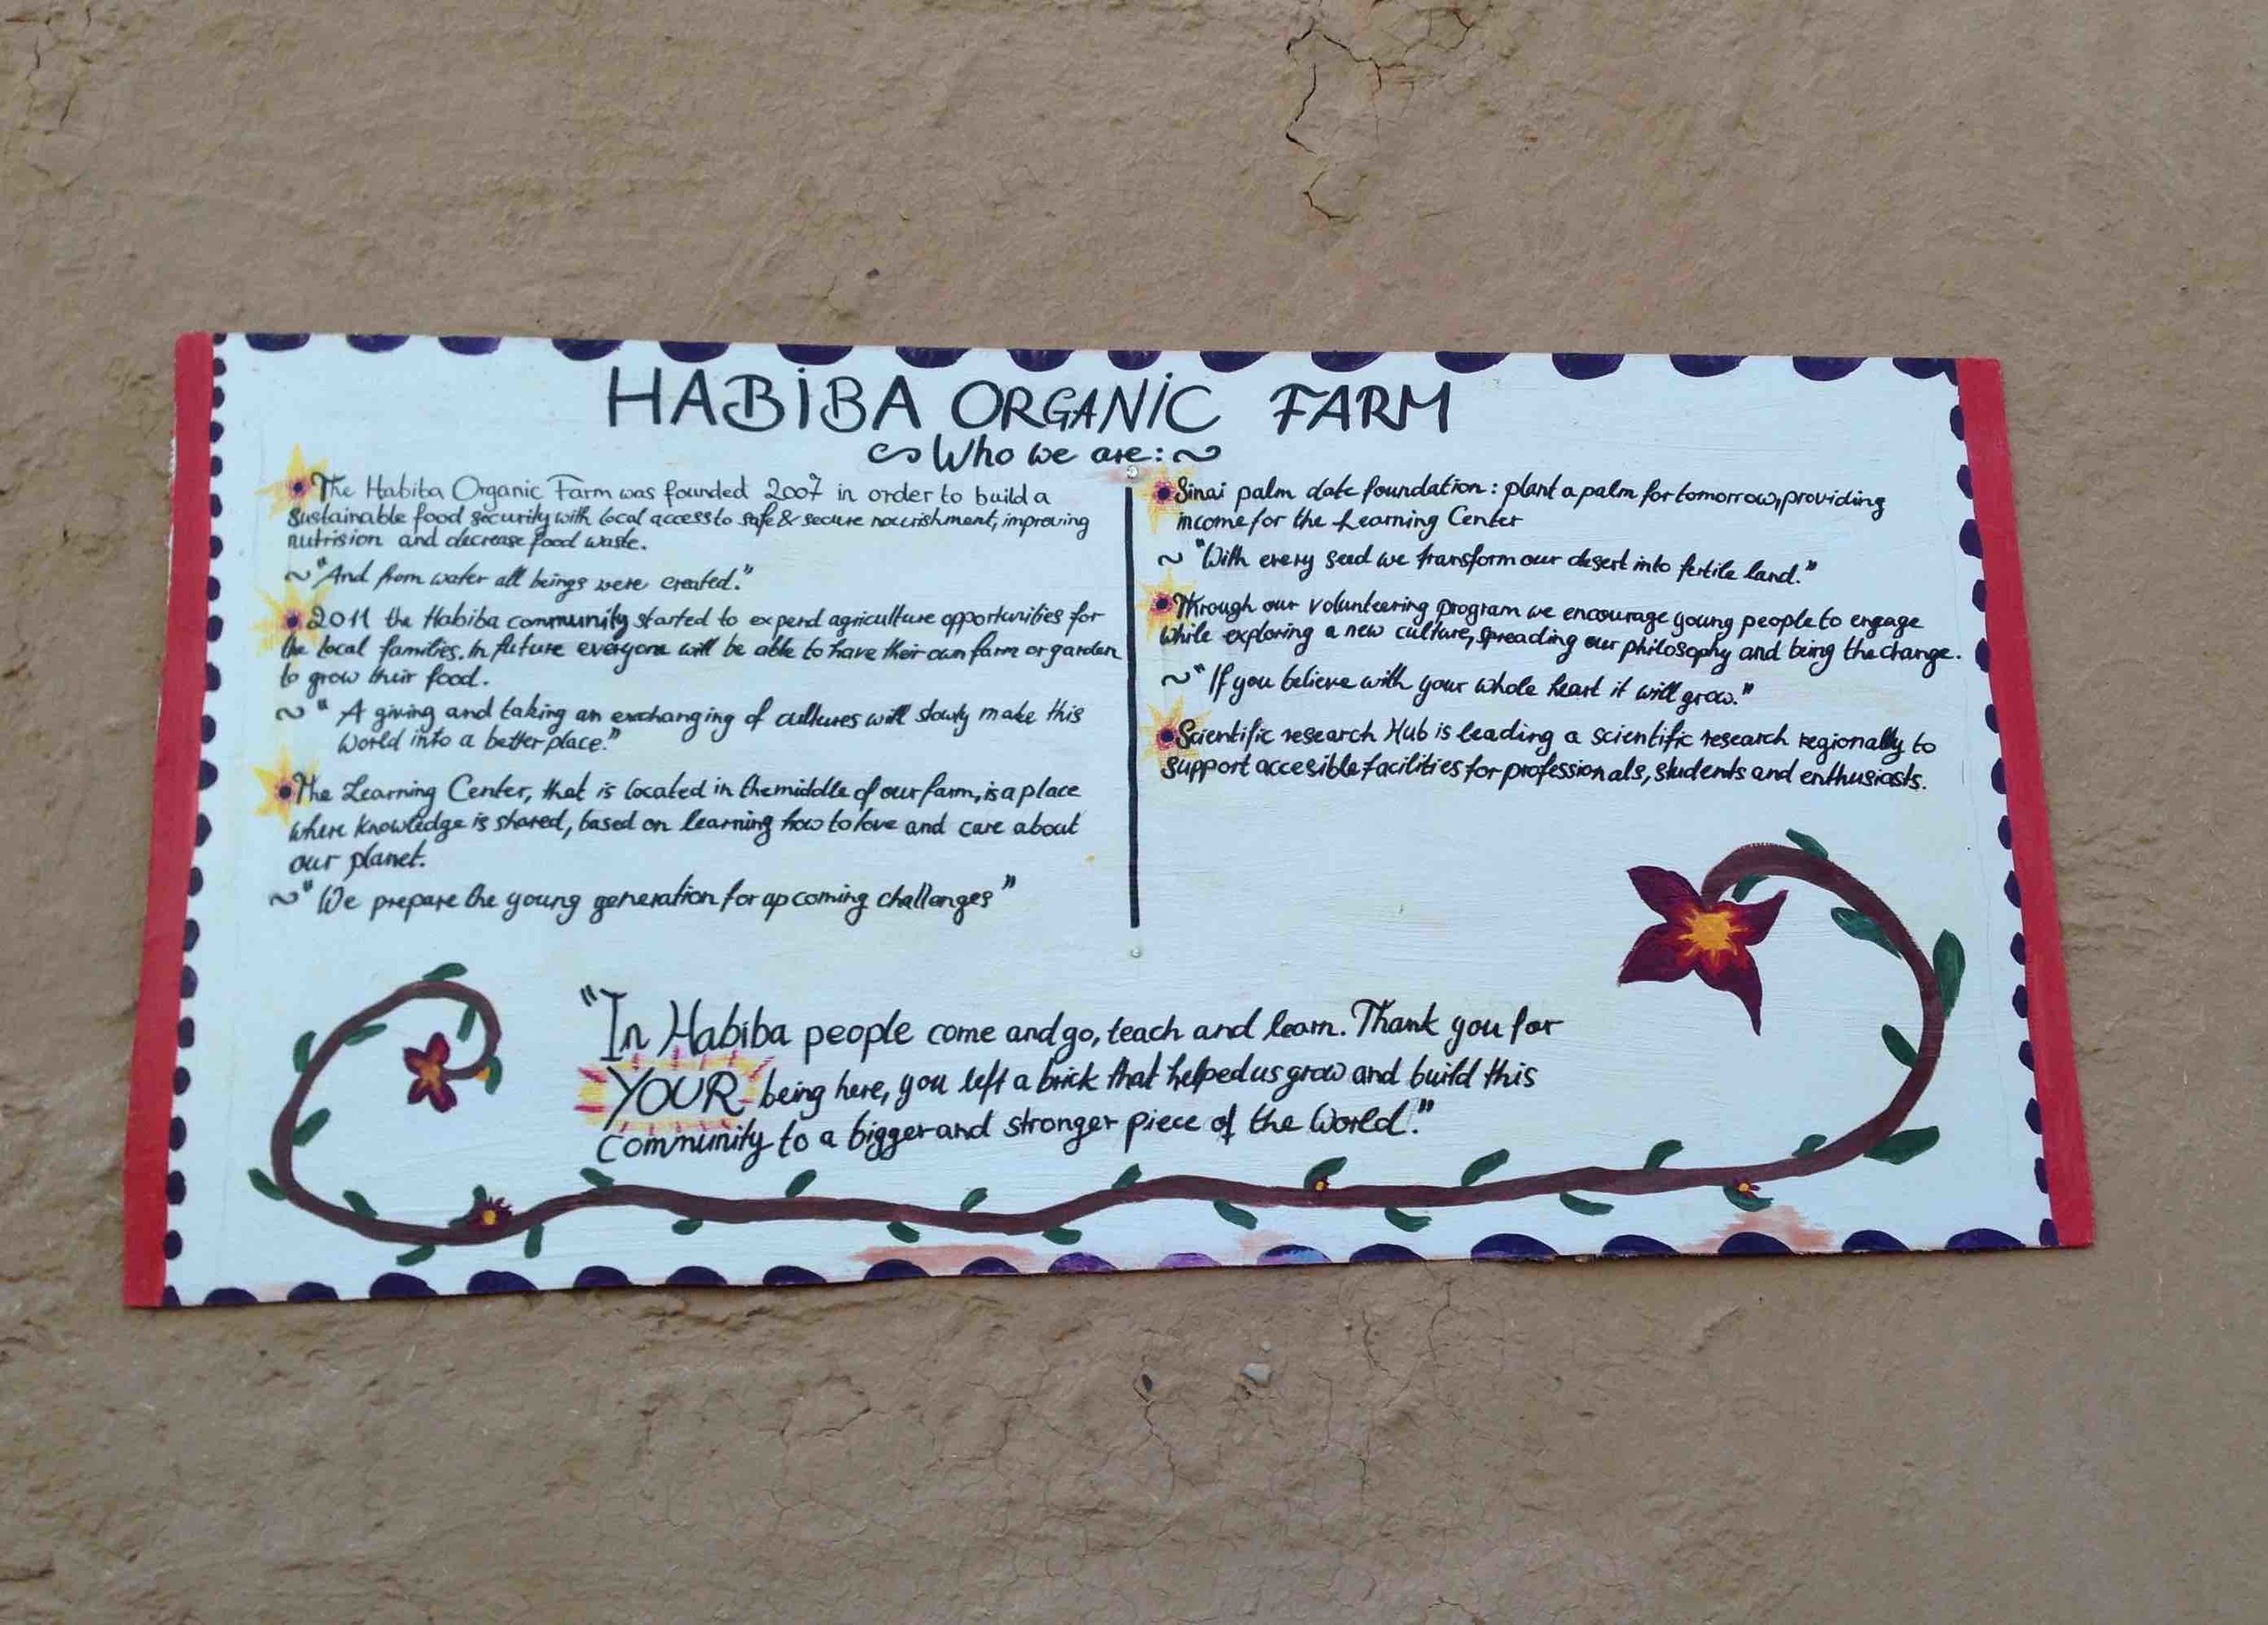 HABIBA ORGANIC FARM
Who we are:
The Habiba Organic Farm was founded 2007 in order to build a
sustainable food security with local access to safe & secure nourishment, improving
nutrision and decrease food waste.
~"And from water all beings were created."
2011 the Habiba community started to expend agriculture opportunities for
the local families. In future everyone will be able to have their own farm or garden
to grow their food.
~" A giving and taking an exchanging of cultures will slowly make this
World into a better place."
The Learning Center, that is located in the middle of our farm, is a place
where knowledge is shared, based on learning how to love and care about
our planet.
~"We prepare the young generation for upcoming challenges"
Sinai palm date foundation: plant a palm for tomorrow, providing
income for the Learning Center
~"With every seed we transform our desert into fertile land."
Through our volunteering program we encourage young people to engage
while exploring a new culture, spreading our philosophy and being the change.
~"If you believe with your whole heart it will grow."
Scientific research Hub is leading a scientific research regionally to
support accesible facilities for professionals, students and enthusiasts.
"In Habiba people come and go, teach and learn. Thank you for
YOUR being here, you left a brick that helped us grow and build this
Community to a bigger and stronger piece of the World."